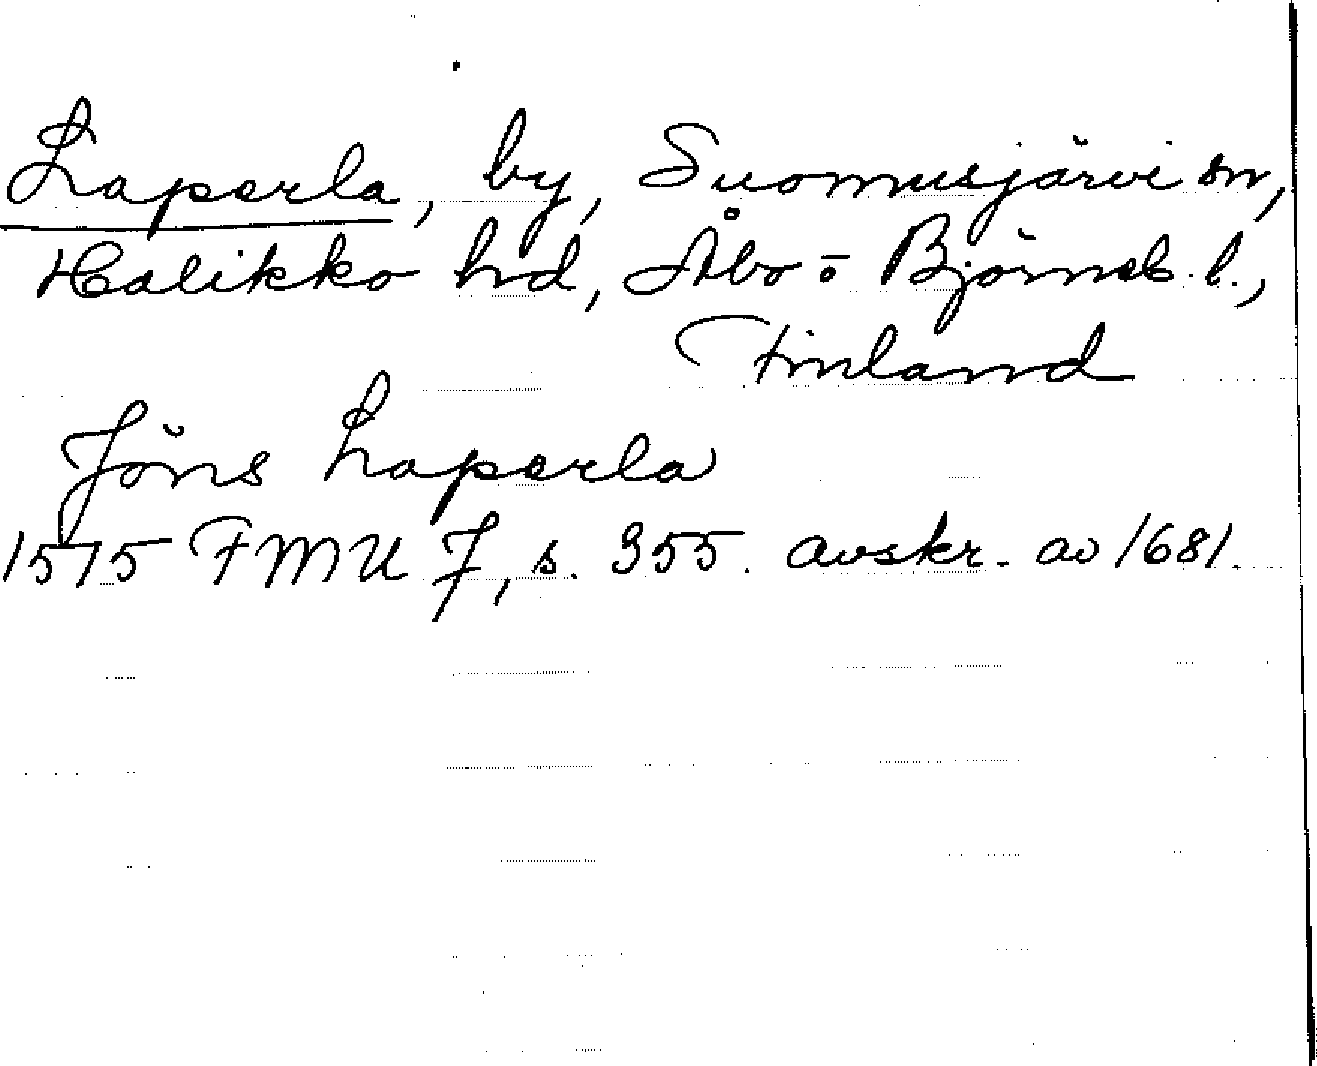 Laperla, by, Suomusjärvi sn,
Halikko hd, Åbo o Björneb. l.,
Finland
Jöns Laperla
1515 FMU 7, s. 355. avskr. av 1681.